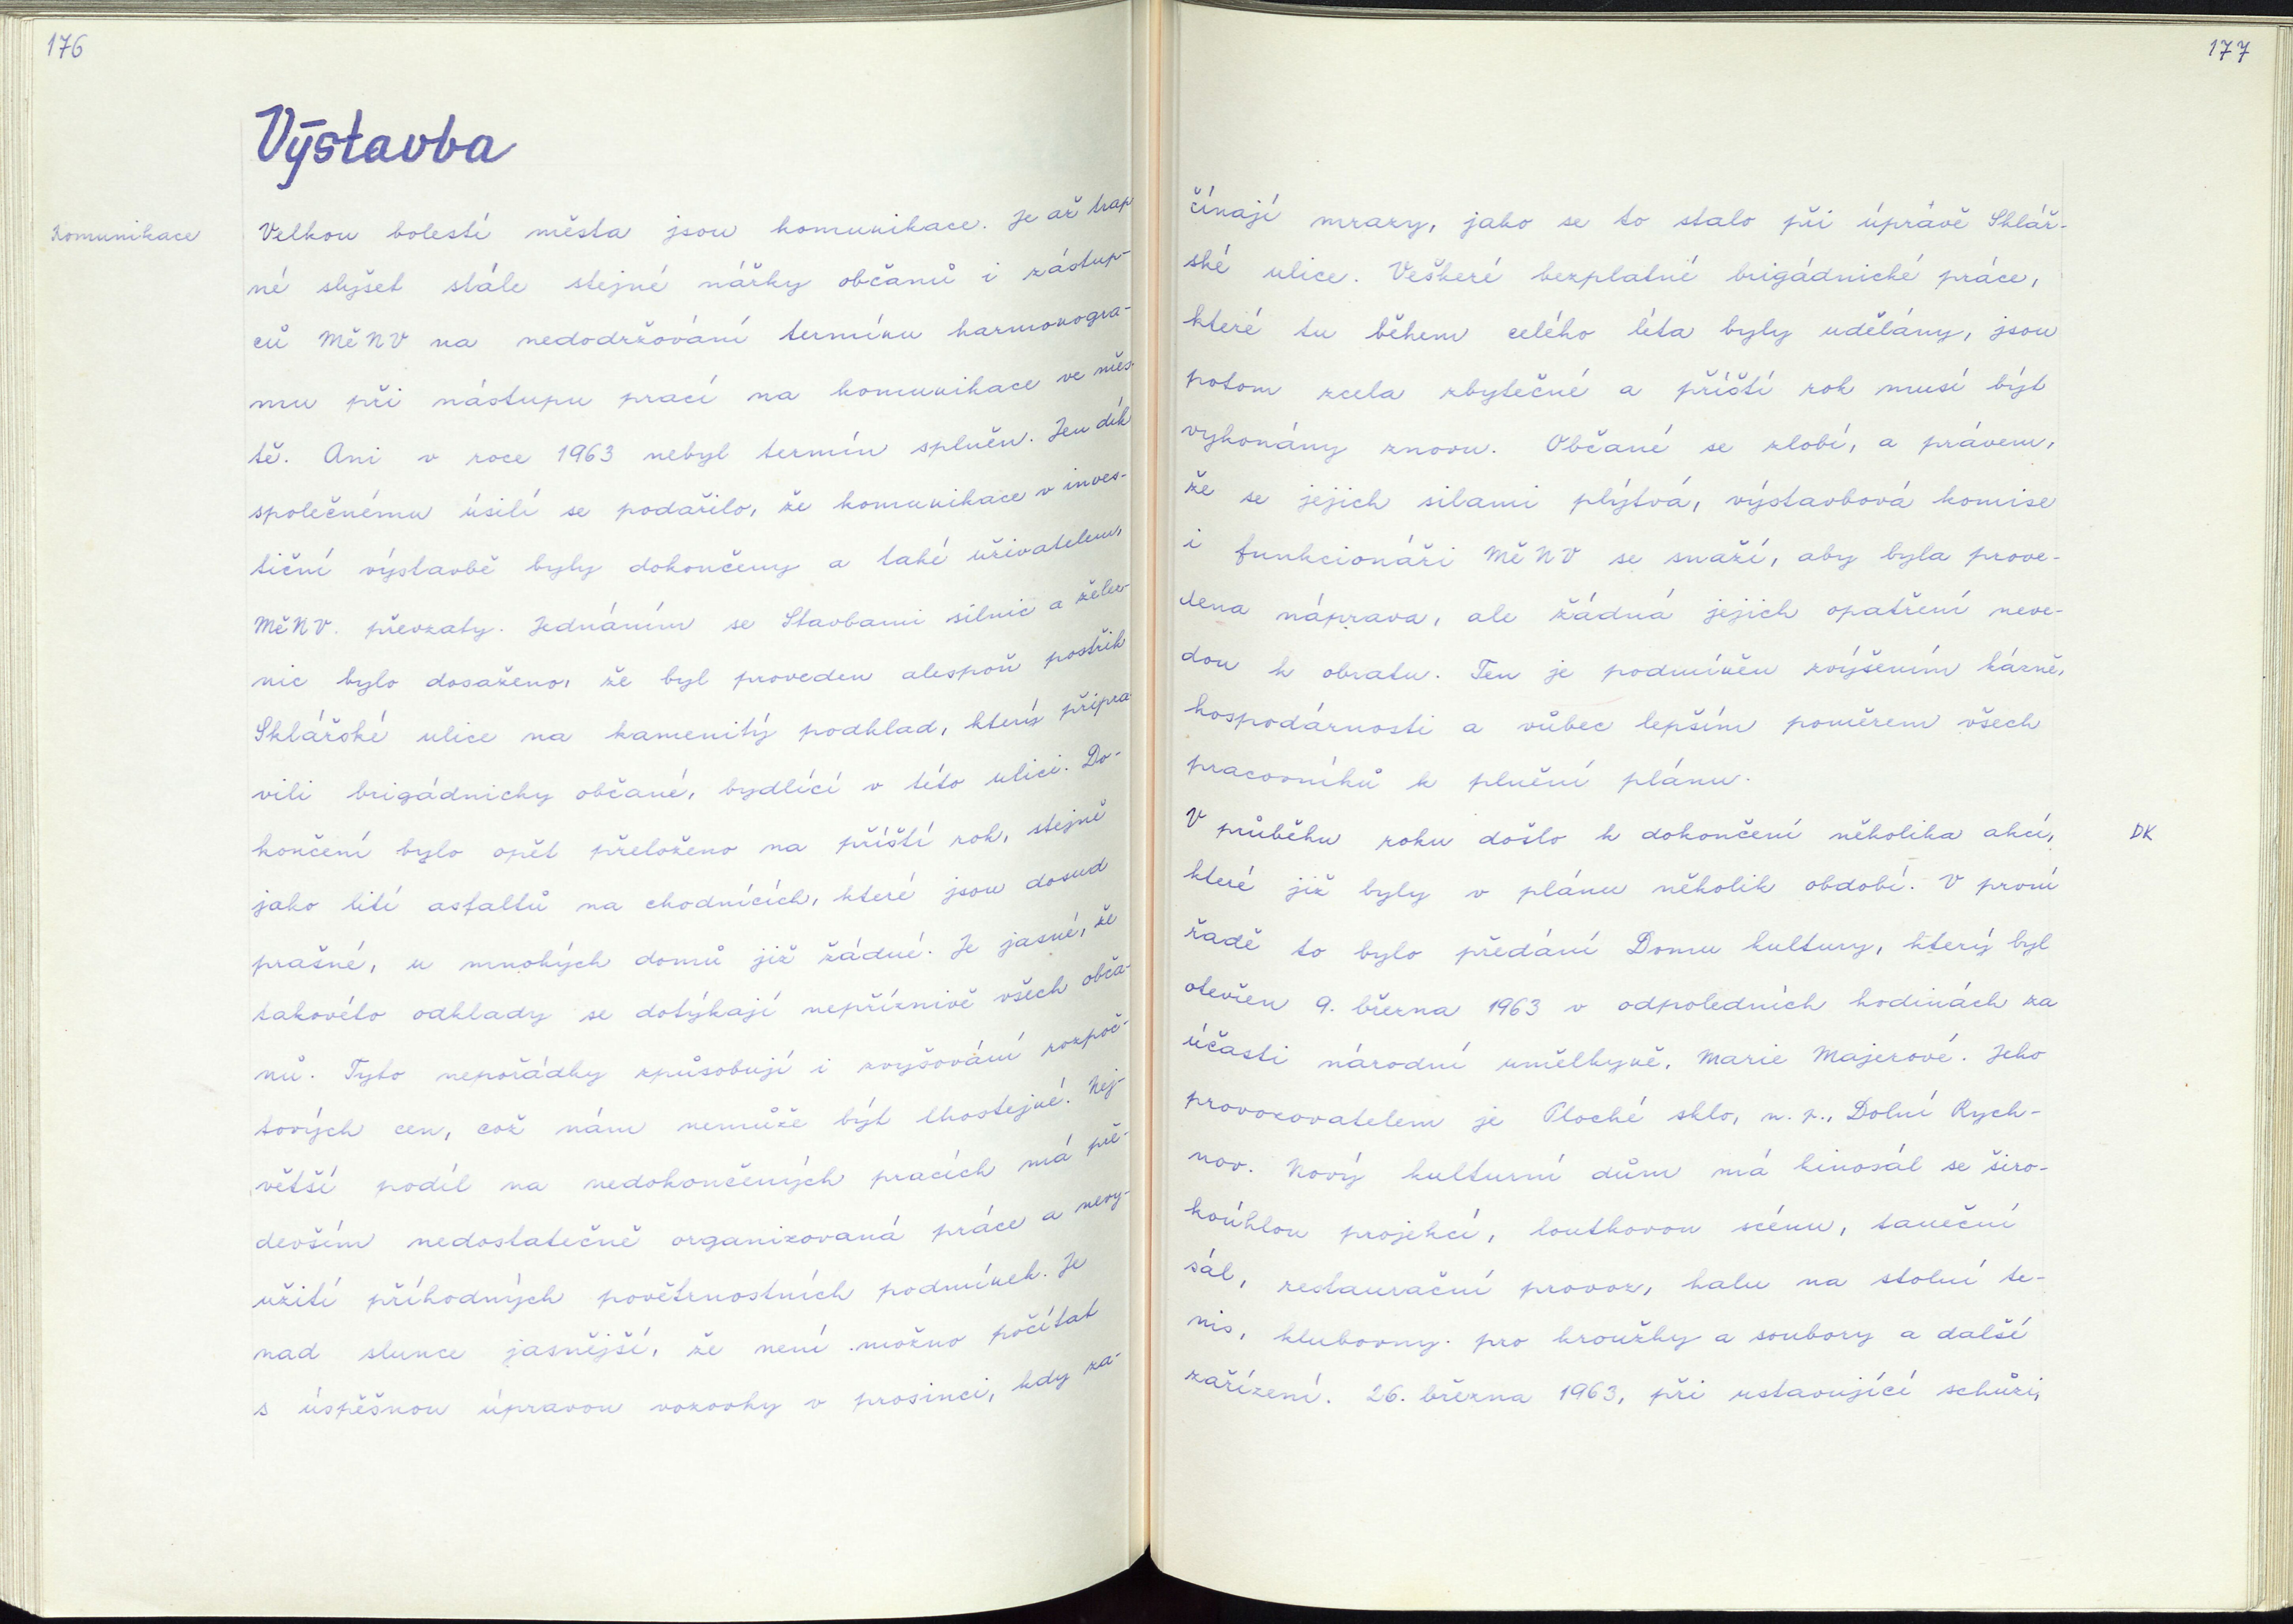 176
Výstavba
Komunikace
Velkou bolestí města jsou komunikace. Je až trap
né slyšet stále stejné nářky občanů i zástup-
ců MěNV na nedodržování termínu harmonogra-
mu při nástupu prací na komunikace ve měs-
tě. Ani v roce 1963 nebyl termín splněn. Jen dík
společnému úsilí se podařilo, že komunikace v inves-
tiční výstavbě byly dokončeny a také uživatelem,
MěNV. převzaty. Jednáním se Stavbami silnic a želez-
nic bylo dosaženo, že byl proveden alespoň postřik
Sklářské ulice na kamenitý podklad, který připra
vili brigádnicky občané, bydlící v této ulici. Do-
končení bylo opět přeloženo na příští rok, stejně
jako lití asfaltů na chodnících, které jsou dosud
prašné, u mnohých domů již žádné. Je jasné, že
takovéto odklady se dotýkají nepříznivě všech obča-
nů. Tyto nepořádky způsobují i zvyšování rozpoč-
tových cen, což nám nemůže být lhostejné. Nej-
větší podíl na nedokončených pracích má pře-
devším nedostatečně organizovaná práce a nevy-
užití příhodných povětrnostních podmínek. Je
nad slunce jasnější, že není možno počítat
s úspěšnou úpravou vozovky v prosinci, kdy za-
177
čínají mrazy, jako se to stalo při úpravě Sklář-
ské ulice. Veškeré bezplatné brigádnické práce,
které tu během celého léta byly udělány, jsou
potom zcela zbytečné a příští rok musí být
vykonány znovu. Občané se zlobí, a právem,
že se jejich silami plýtvá, výstavbová komise
i funkcionáři MěNV se snaží, aby byla prove-
dena náprava, ale žádná jejich opatření neve-
dou k obratu. Ten je podmíněn zvýšením kázně,
hospodárnosti a vůbec lepším poměrem všech
pracovníků k plnění plánu.
V průběhu roku došlo k dokončení několika akcí,
DK
které již byly v plánu několik období. V první
řadě to bylo předání Domu kultury, který byl
otevřen 9. března 1963 v odpoledních hodinách za
účasti národní umělkyně, Marie Majerové. Jeho
provozovatelem je Ploché sklo, n. p., Dolní Rych-
nov. Nový kulturní dům má kinosál se širo-
koúhlou projekcí, loutkovou scénu, taneční
sál, restaurační provoz, halu na stolní te-
nis, klubovny pro kroužky a soubory a další
zařízení. 26. března 1963, při ustavující schůzi,